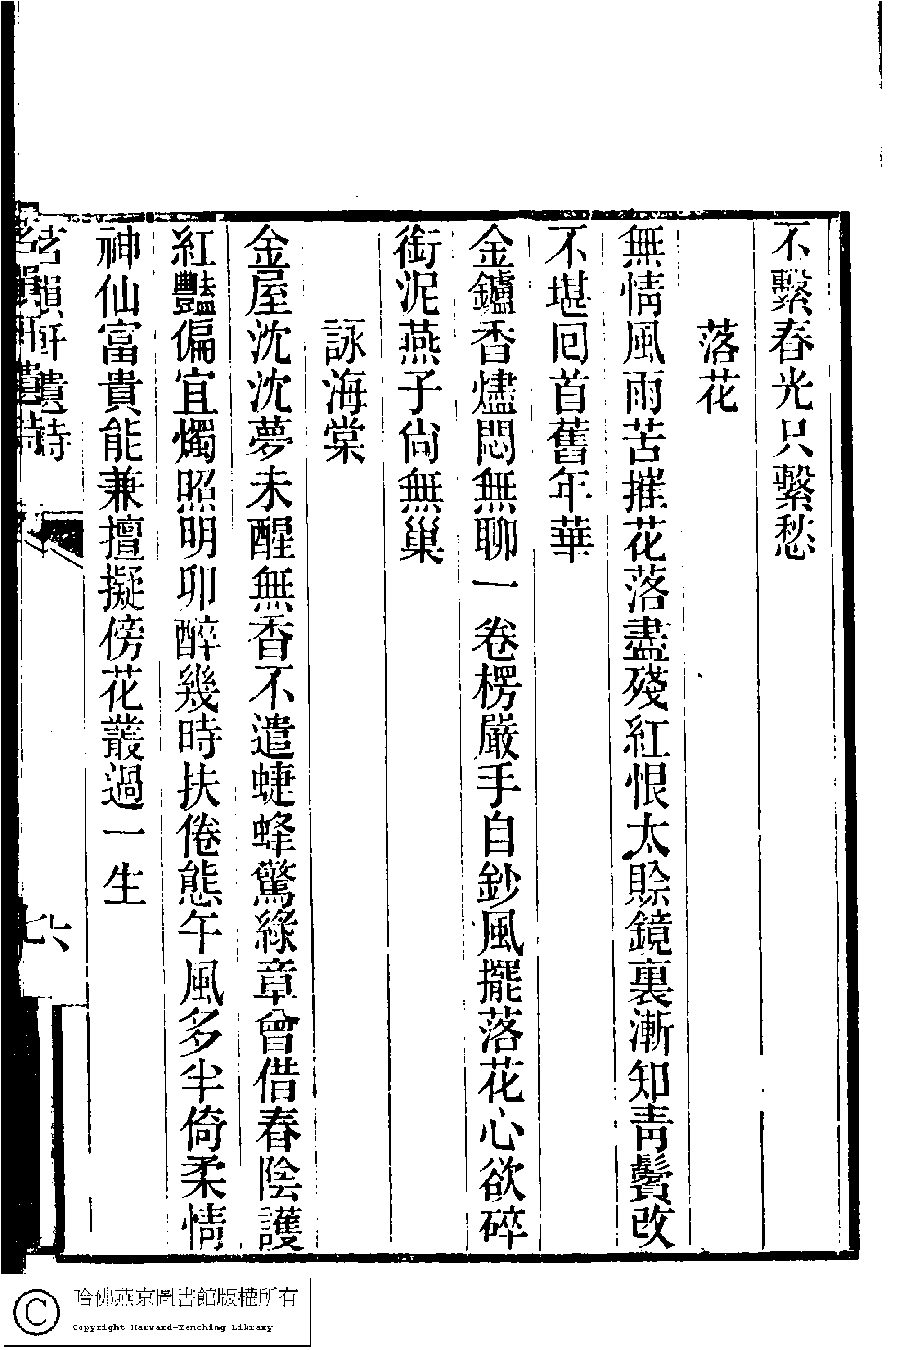 不繫春光只繫愁
落花
無情風雨苦摧花落盡殘紅恨太賖鏡裏漸知靑鬢改
不堪回首舊年華
金鑪香燼悶無聊一卷楞嚴手自鈔風擺落花心欲碎
銜泥燕子尙無巢
詠海棠
金屋沈沈夢未醒無香不遣蜨蜂驚綠章曾借春陰護
紅豔偏宜燭照明卯醉幾時扶倦態午風多半倚柔情
神仙富貴能兼擅擬傍花叢過一生
茗韻軒遺詩
六
哈佛燕京圖書館版權所有
Copyright Harvard-Yenching Library